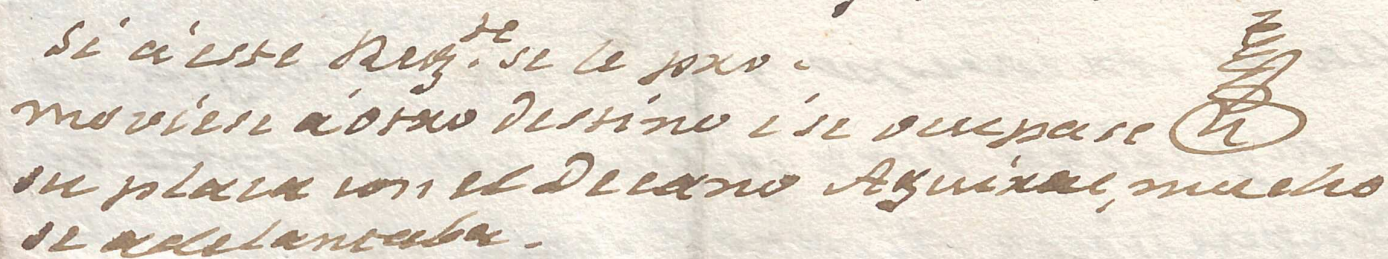 Si á este Reg.te se le pro-
moviese á otro destino i se ocupase
su plaza con el Decano Aguirre, mucho
se adelantaba.